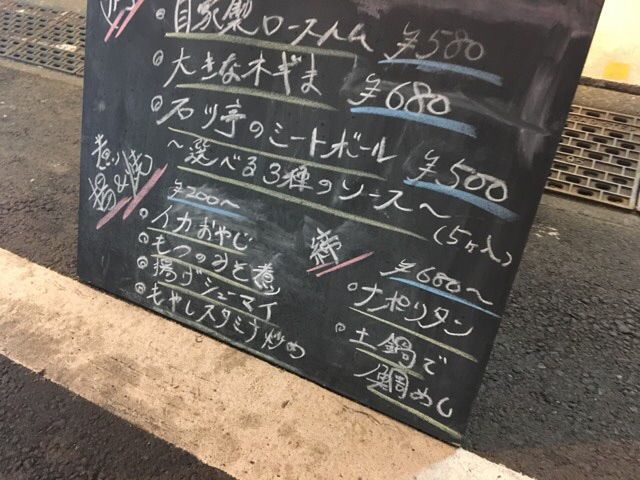 自家製ロースハム ¥580
大きなネギま ¥680
石川亭のミートボール ¥500
〜選べる3種のソース〜 (5ヶ入)
煮・揚&焼
¥200〜
イカおやじ
もつのみそ煮
揚げシューマイ
もやしスタミナ炒め
締
¥680〜
ナポリタン
土鍋で
鯛めし